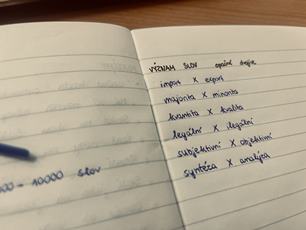 000 - 10000 slov
VÝZNAM SLOV opačné dvojice
import X export
majorita X minorita
kvantita X kvalita
legální X ilegální
subjektivní X objektivní
syntéza X analýza